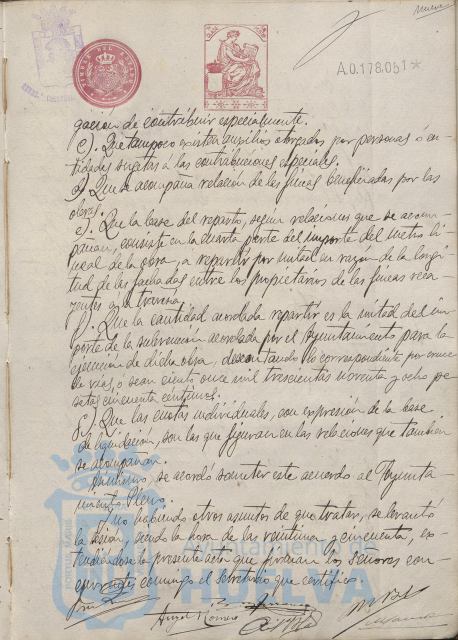 nueve
TIMBRE DEL ESTADO
A.0.178.051*
gacion de contribuir especialmente.
c). Que tampoco existen auxilios otorgados por personas ó en-
tidades sujetas á las contribuciones especiales.
d) Que se acompaña relación de las fincas beneficiadas por las
obras.
e). Que la base del reparto, segun relaciones que se acom-
pañan, consiste en la cuarta parte del importe del metro li-
neal de la obra, a repartir por mitad en razon de la longi-
tud de las fachadas entre los propietarios de las fincas reca-
yentes
f). Que la cantidad acordada repartir es la mitad del im-
porte de la subvencion acordada por el Ayuntamiento para la
ejecucion de dicha obra, descontando lo correspondiente por cruce
de vias, ó sean ciento once mil trescientas noventa y ocho pe-
setas cincuenta centimos.
g) Que las cuotas individuales, con expresión de la base
de liquidación, son las que figuran en las relaciones que tambien
se acompañan.
Asimismo, se acordó someter este acuerdo al Ayunta-
miento Pleno.
Y no habiendo otros asuntos de que tratar, se levantó
la sesion, siendo la hora de las veintiuna y cincuenta, ex-
tendiéndose la presente acta que firman los Señores con-
currentes conmigo el Secretario que certifico.
Angel Romero
Ayuntamiento de
HUELVA